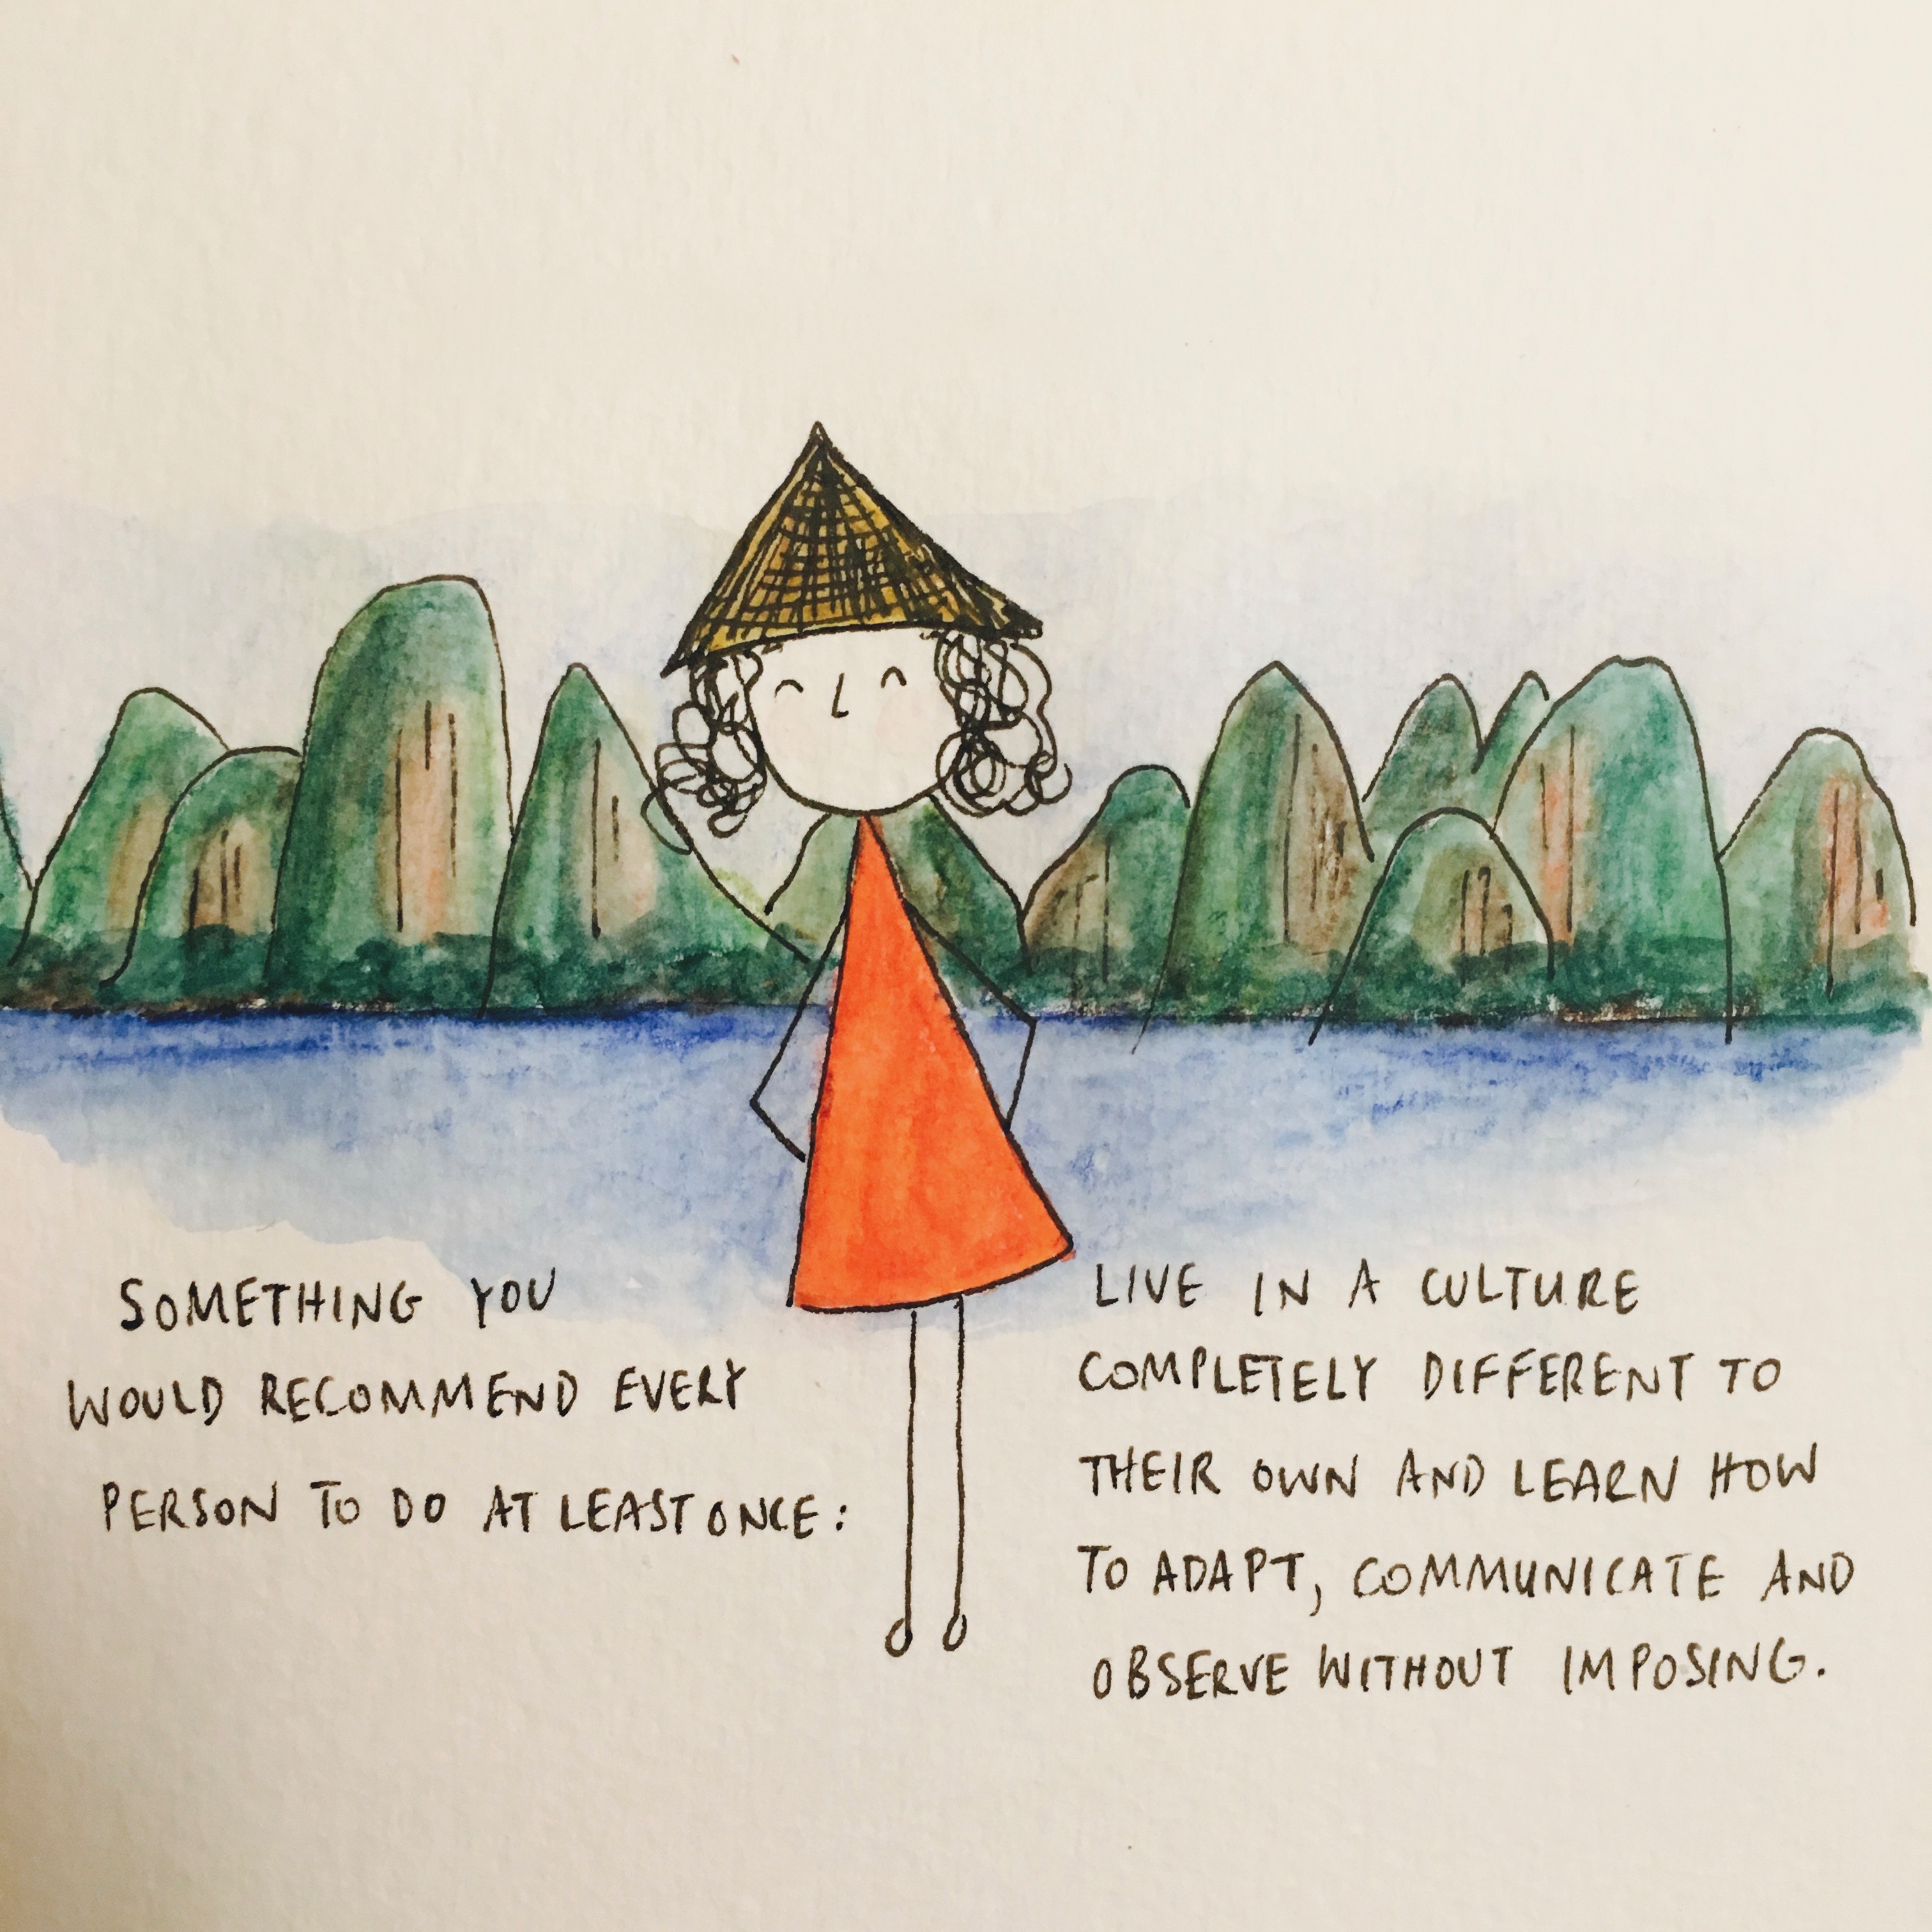 SOMETHING YOU
WOULD RECOMMEND EVERY
PERSON TO DO AT LEAST ONCE:
LIVE IN A CULTURE
COMPLETELY DIFFERENT TO
THEIR OWN AND LEARN HOW
TO ADAPT, COMMUNICATE AND
OBSERVE WITHOUT IMPOSING.